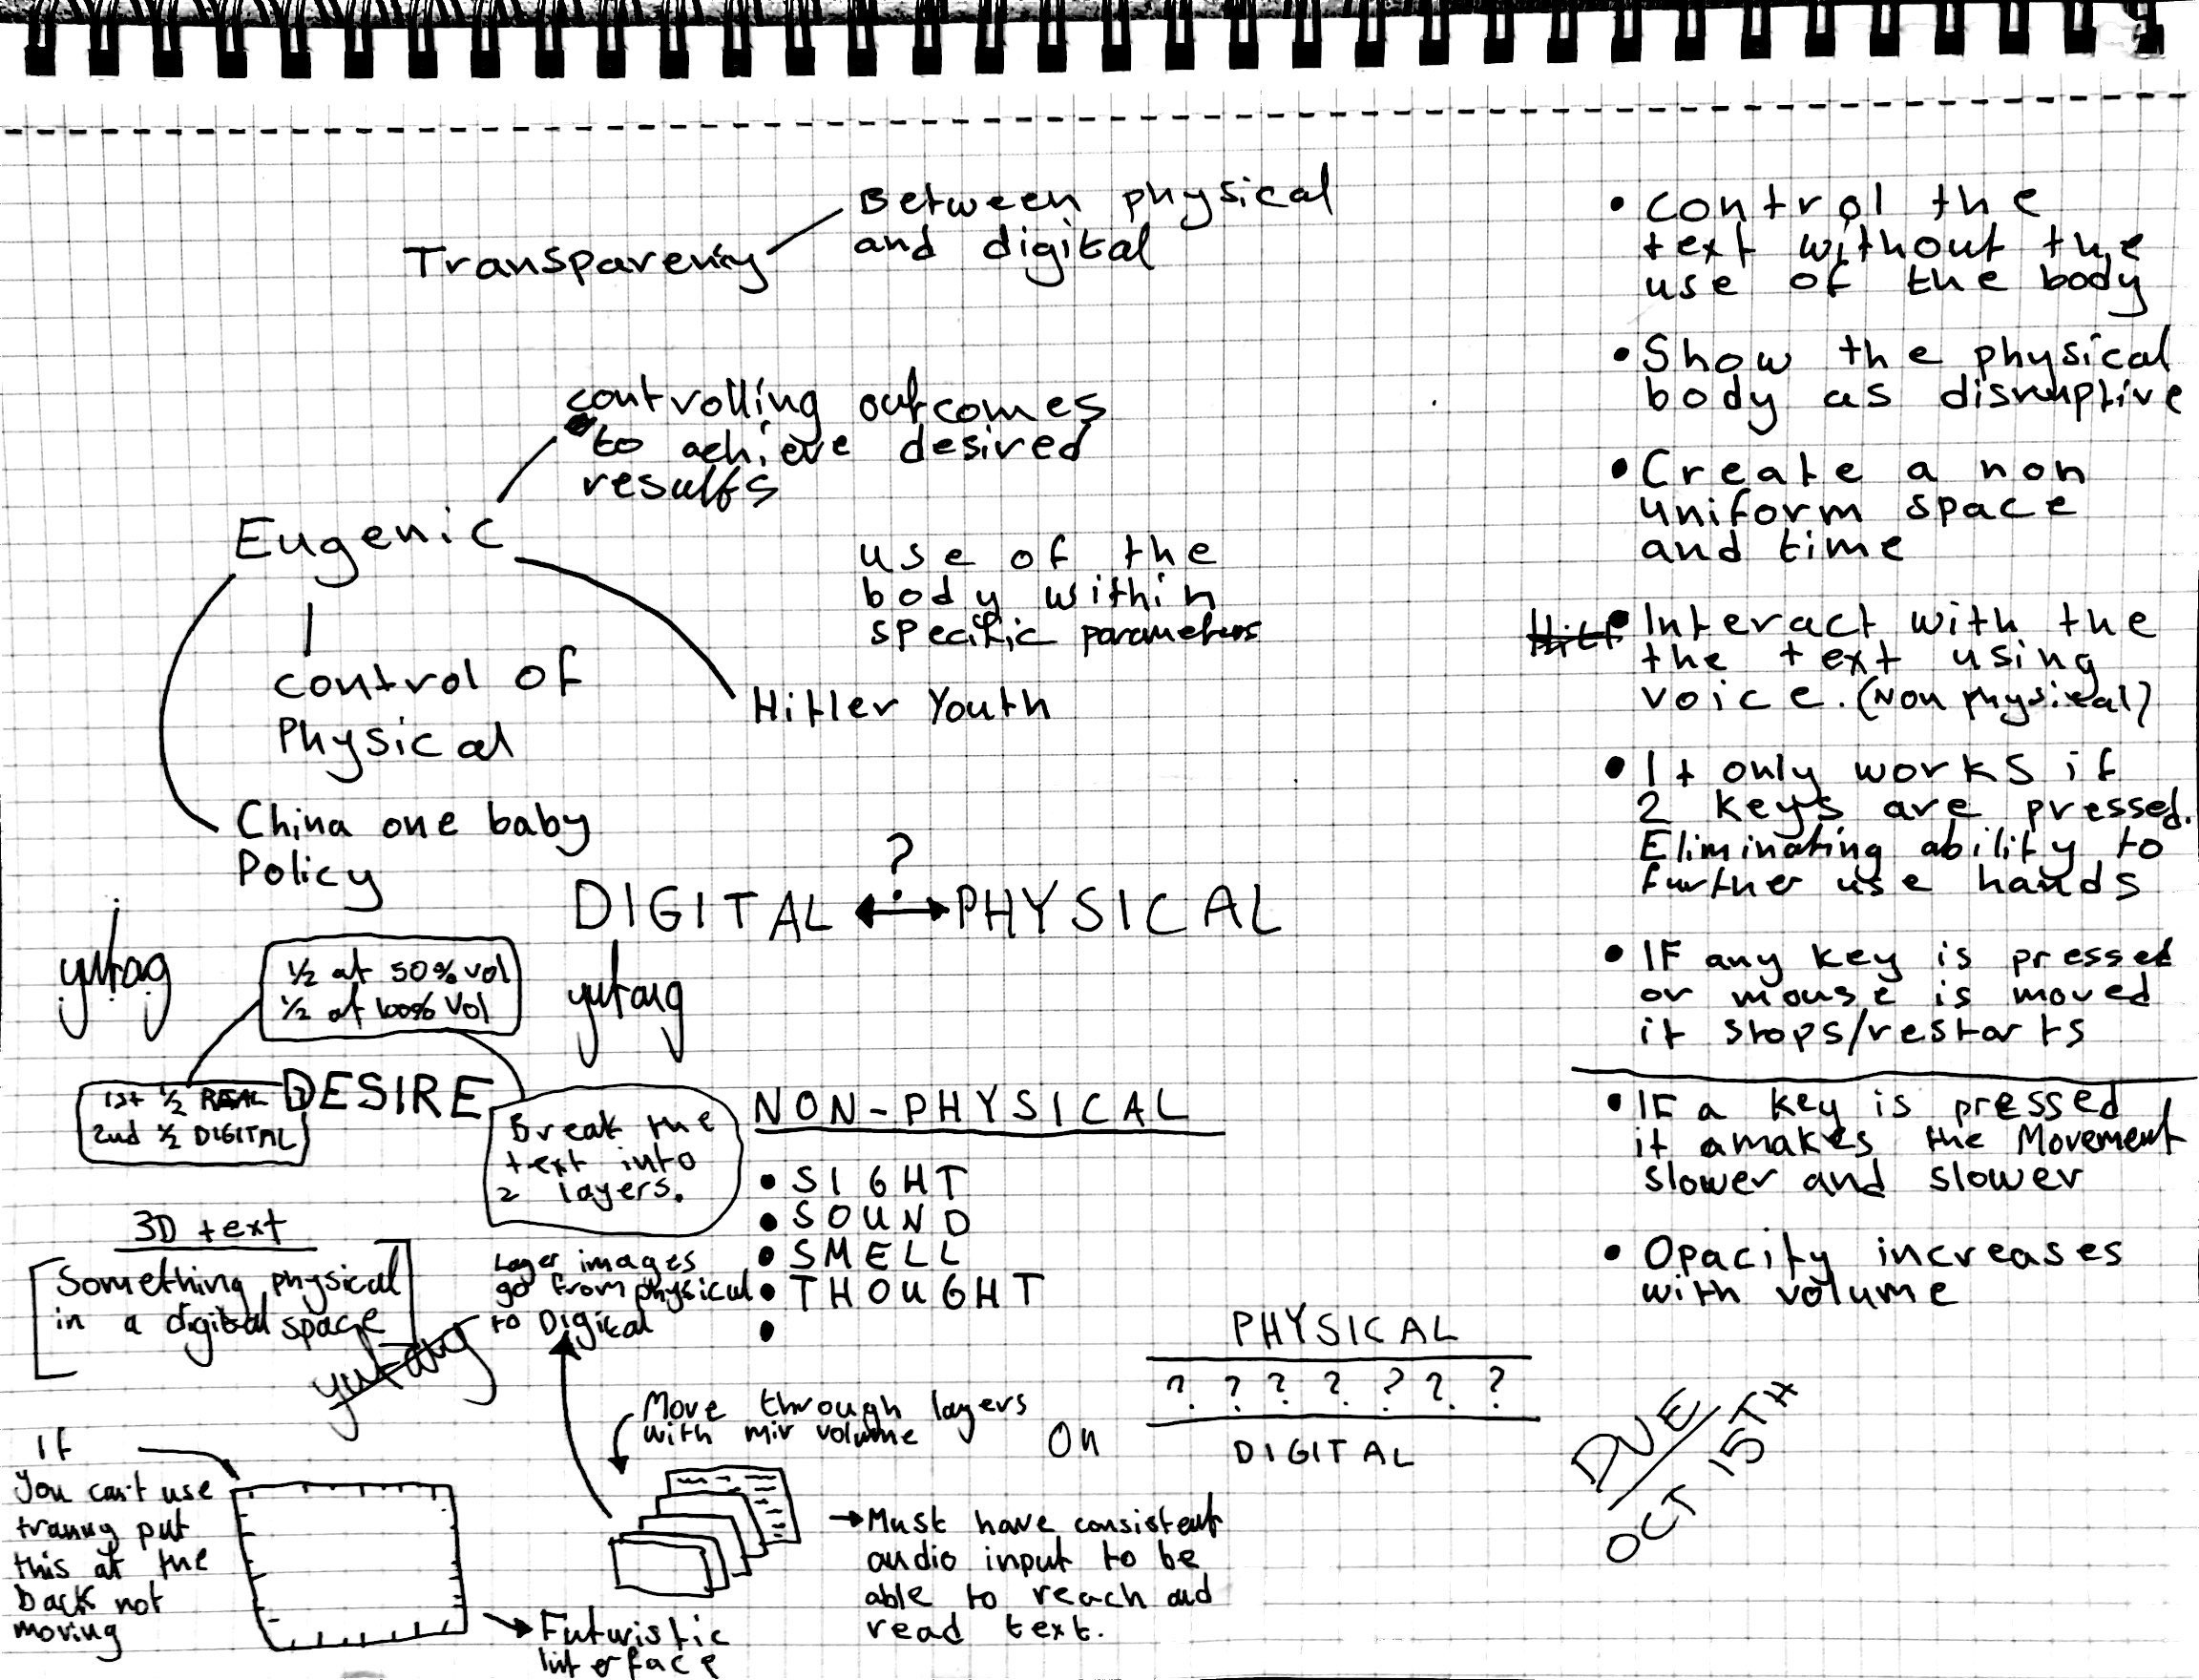 Transparency
Between physical
and digital
controlling outcomes
to achieve desired
results
Eugenic
use of the
body within
specific parameters
control of
Physical
Hitler Youth
China one baby
Policy
?
DIGITAL PHYSICAL
1/2 at 50% vol
1/2 at 100% vol
1st 1/2 REAL
2nd 1/2 DIGITAL
DESIRE
Break the
text into
2 layers.
NON-PHYSICAL
• SIGHT
• SOUND
• SMELL
• THOUGHT
•
3D text
Something physical
in a digital space
Layer images
go from physical
to Digital
PHYSICAL
? ? ? ? ? ? ?
DIGITAL
Move through layers
with mir volume
on
If
You can't use
put
this at the
back not
moving
→ Futuristic
Interface
→ Must have consistent
audio input to be
able to reach and
read text.
• control the
text without the
use of the body
• Show the physical
body as disruptive
• Create a non
uniform space
and time
• Interact with the
the text using
voice. (Non physical)
• It only works if
2 keys are pressed.
Eliminating ability to
further use hands
• IF any key is pressed
or mouse is moved
it stops/restarts
• IF a key is pressed
it amakes the Movement
slower and slower
• Opacity increases
with volume
DUE
OCT 15TH